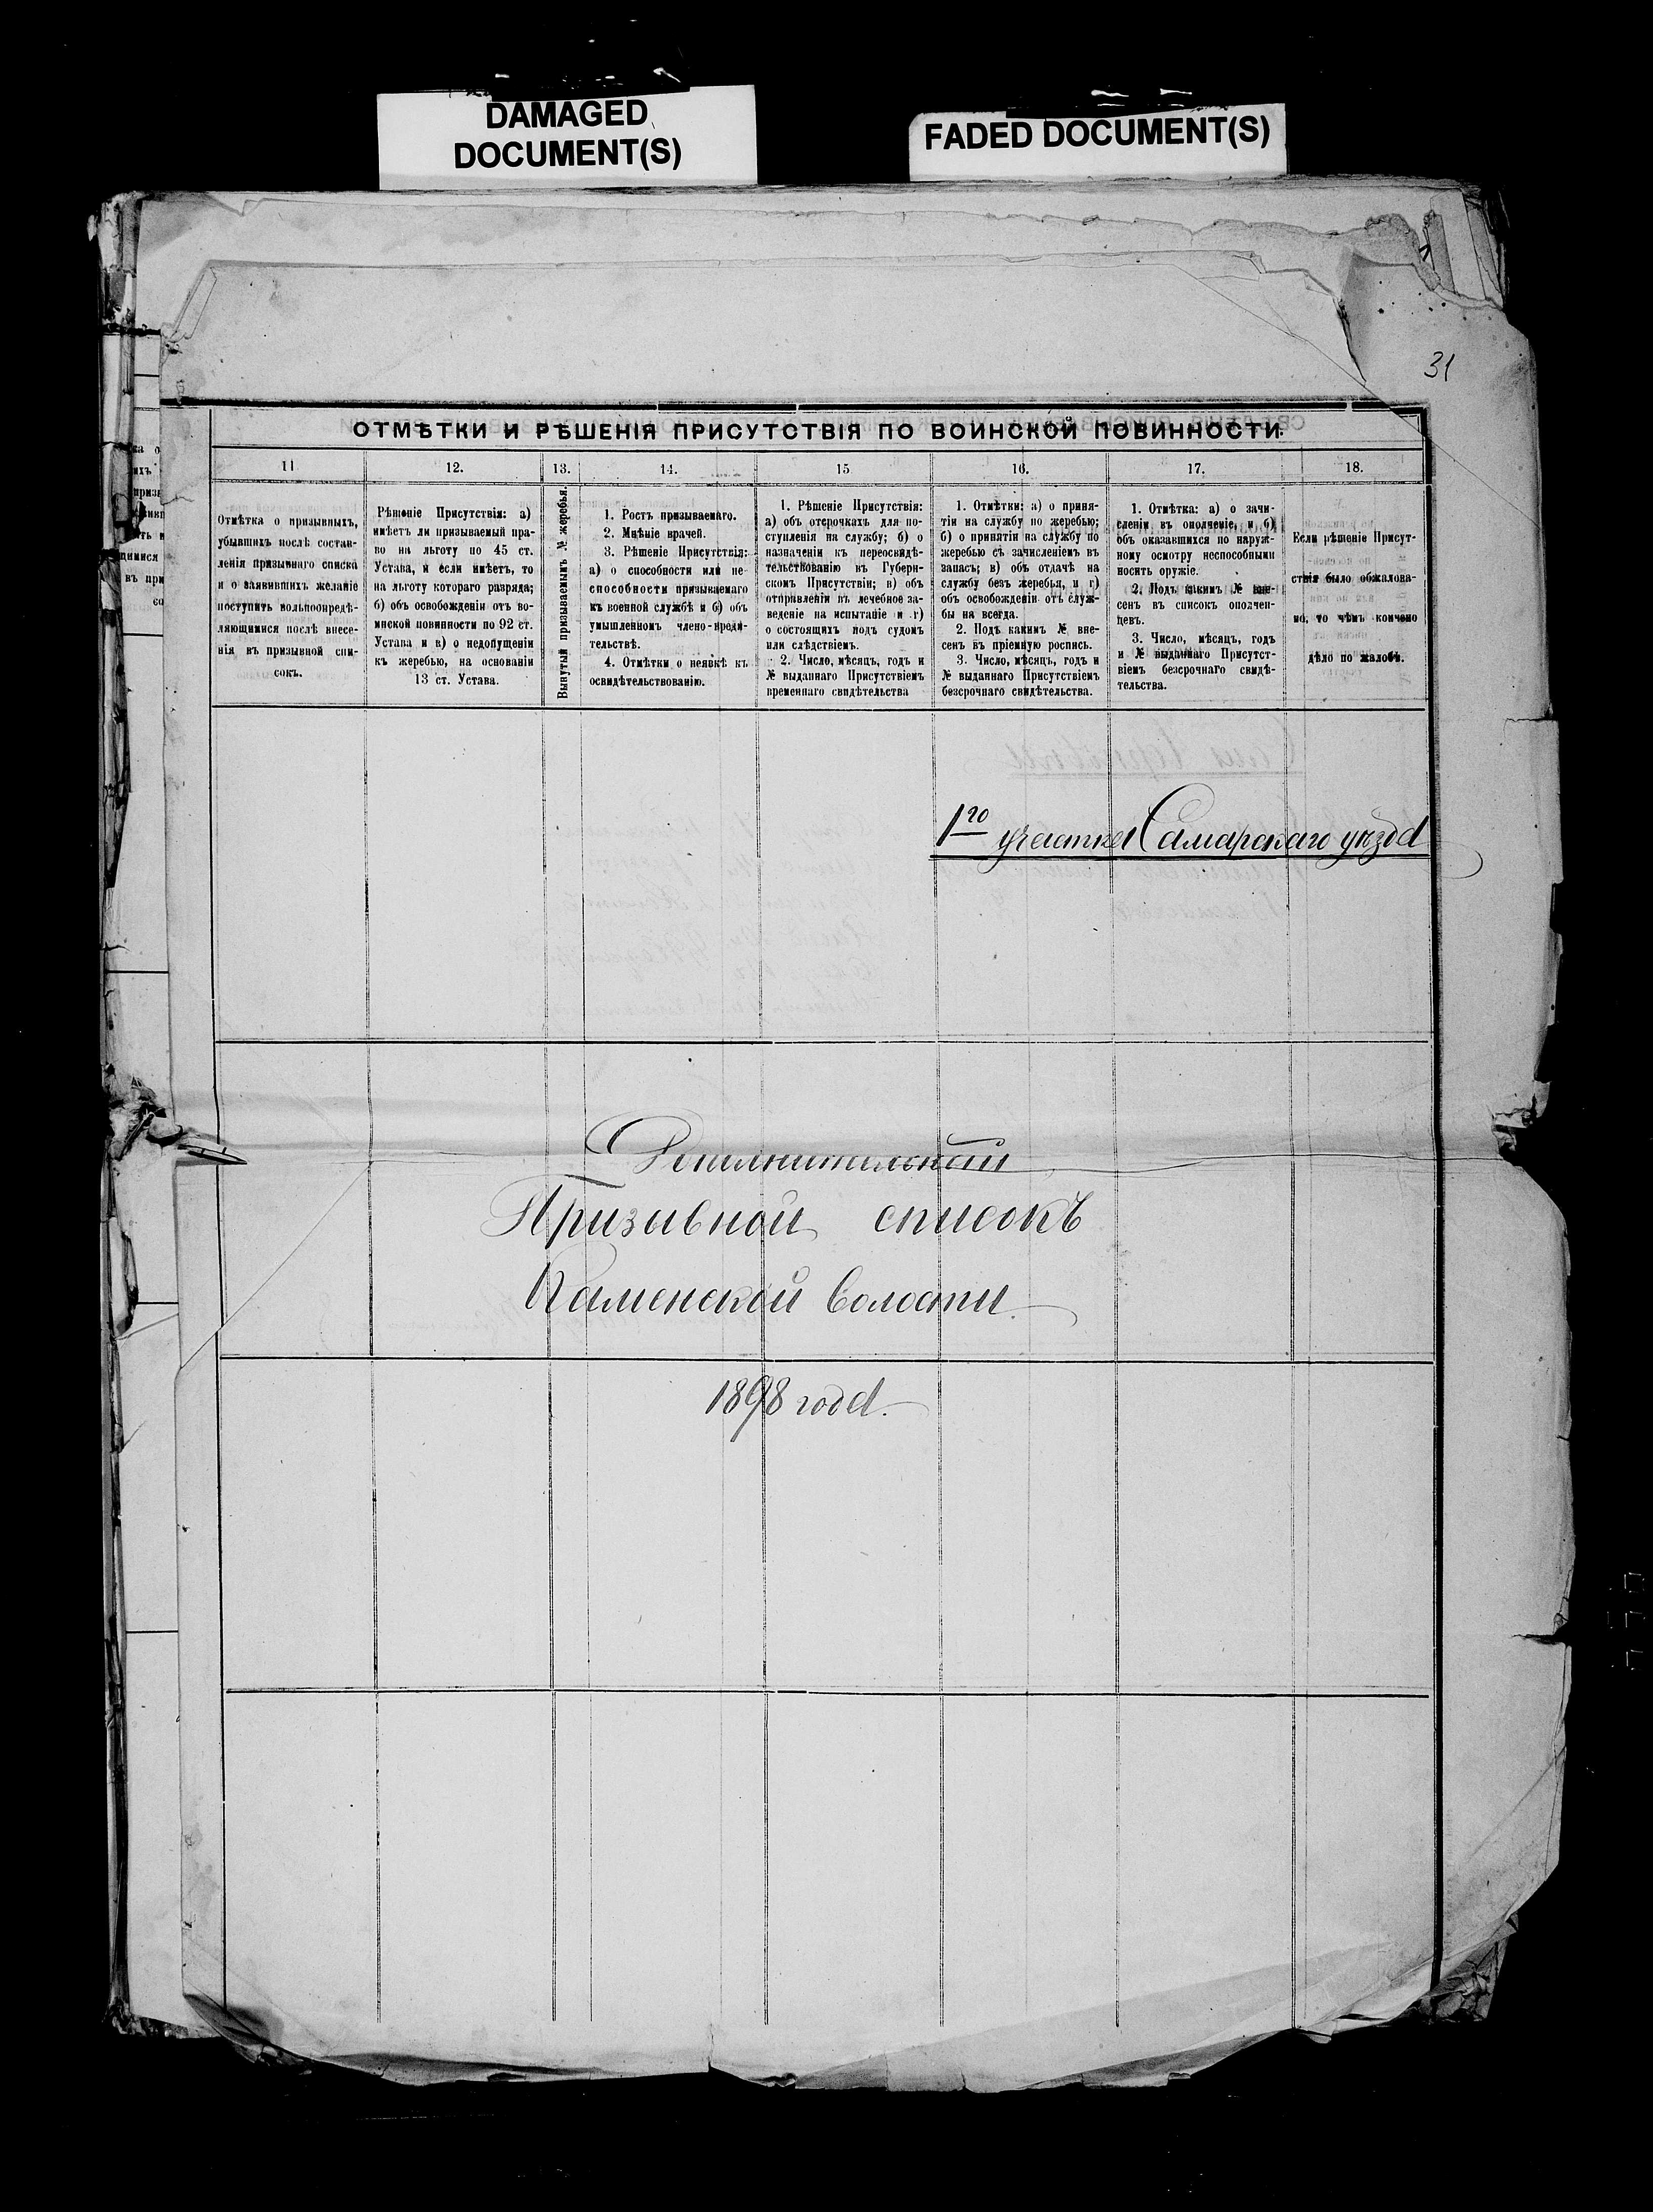 DAMAGED
DOCUMENT(S)
FADED DOCUMENT(S)
31
ОТМѢТКИ И РѢШЕНІЯ ПРИСУТСТВІЯ ПО ВОИНСКОЙ ПОВИННОСТИ.
11
12.
13.
14.
15
16.
17.
18.
Отмѣтка о призывныхъ,
убывшихъ послѣ состав-
ленія призывнаго списка
и о заявившихъ желаніе
поступить вольноопредѣ-
ляющимися послѣ внесе-
нія въ призывной спи-
сокъ.
Рѣшеніе Присутствія: а)
имѣетъ ли призываемый пра-
во на льготу по 45 ст.
Устава, и если имѣетъ, то
на льготу котораго разряда;
б) объ освобожденіи отъ во-
инской повинности по 92 ст.
Устава и в) о недопущеніи
къ жеребью, на основаніи
13 ст. Устава.
Вынутый призываемымъ № жеребья.
1. Ростъ призываемаго.
2. Мнѣніе врачей.
3. Рѣшеніе Присутствія:
а) о способности или не-
способности призываемаго
къ военной службѣ и б) объ
умышленномъ члено-вреди-
тельствѣ.
4. Отмѣтки о неявкѣ къ
освидѣтельствованію.
1. Рѣшеніе Присутствія:
а) объ отсрочкахъ для по-
ступленія на службу; б) о
назначеніи къ переосвидѣ-
тельствованію въ Губерн-
скомъ Присутствіи; в) объ
отправленіи въ лечебное за-
веденіе на испытаніе и г)
о состоящихъ подъ судомъ
или слѣдствіемъ.
2. Число, мѣсяцъ, годъ и
№ выданнаго Присутствіемъ
временнаго свидѣтельства
1. Отмѣтки: а) о приня-
тіи на службу по жеребью;
б) о принятіи на службу по
жеребью съ зачисленіемъ въ
запасъ; в) объ отдачѣ на
службу безъ жеребья, и г)
объ освобожденіи отъ служ-
бы на всегда.
2. Подъ какимъ № вне-
сенъ въ пріемную роспись.
3. Число, мѣсяцъ, годъ и
№ выданнаго Присутствіемъ
безсрочнаго свидѣтельства.
1. Отмѣтка: а) о зачи-
сленіи въ ополченіе, и б)
объ оказавшихся по наруж-
ному осмотру неспособными
носить оружіе.
2. Подъ какимъ № вне-
сенъ въ списокъ ополчен-
цевъ.
3. Число, мѣсяцъ, годъ
и № выданнаго Присутст-
віемъ безсрочнаго свидѣ-
тельства.
Если рѣшеніе Присут-
ствія было обжалова-
но, то чѣмъ кончено
дѣло по жалобѣ.
1го участка Самарскаго уѣзда
Дополнительный
Призывной списокъ
Каменской волости.
1898 года.